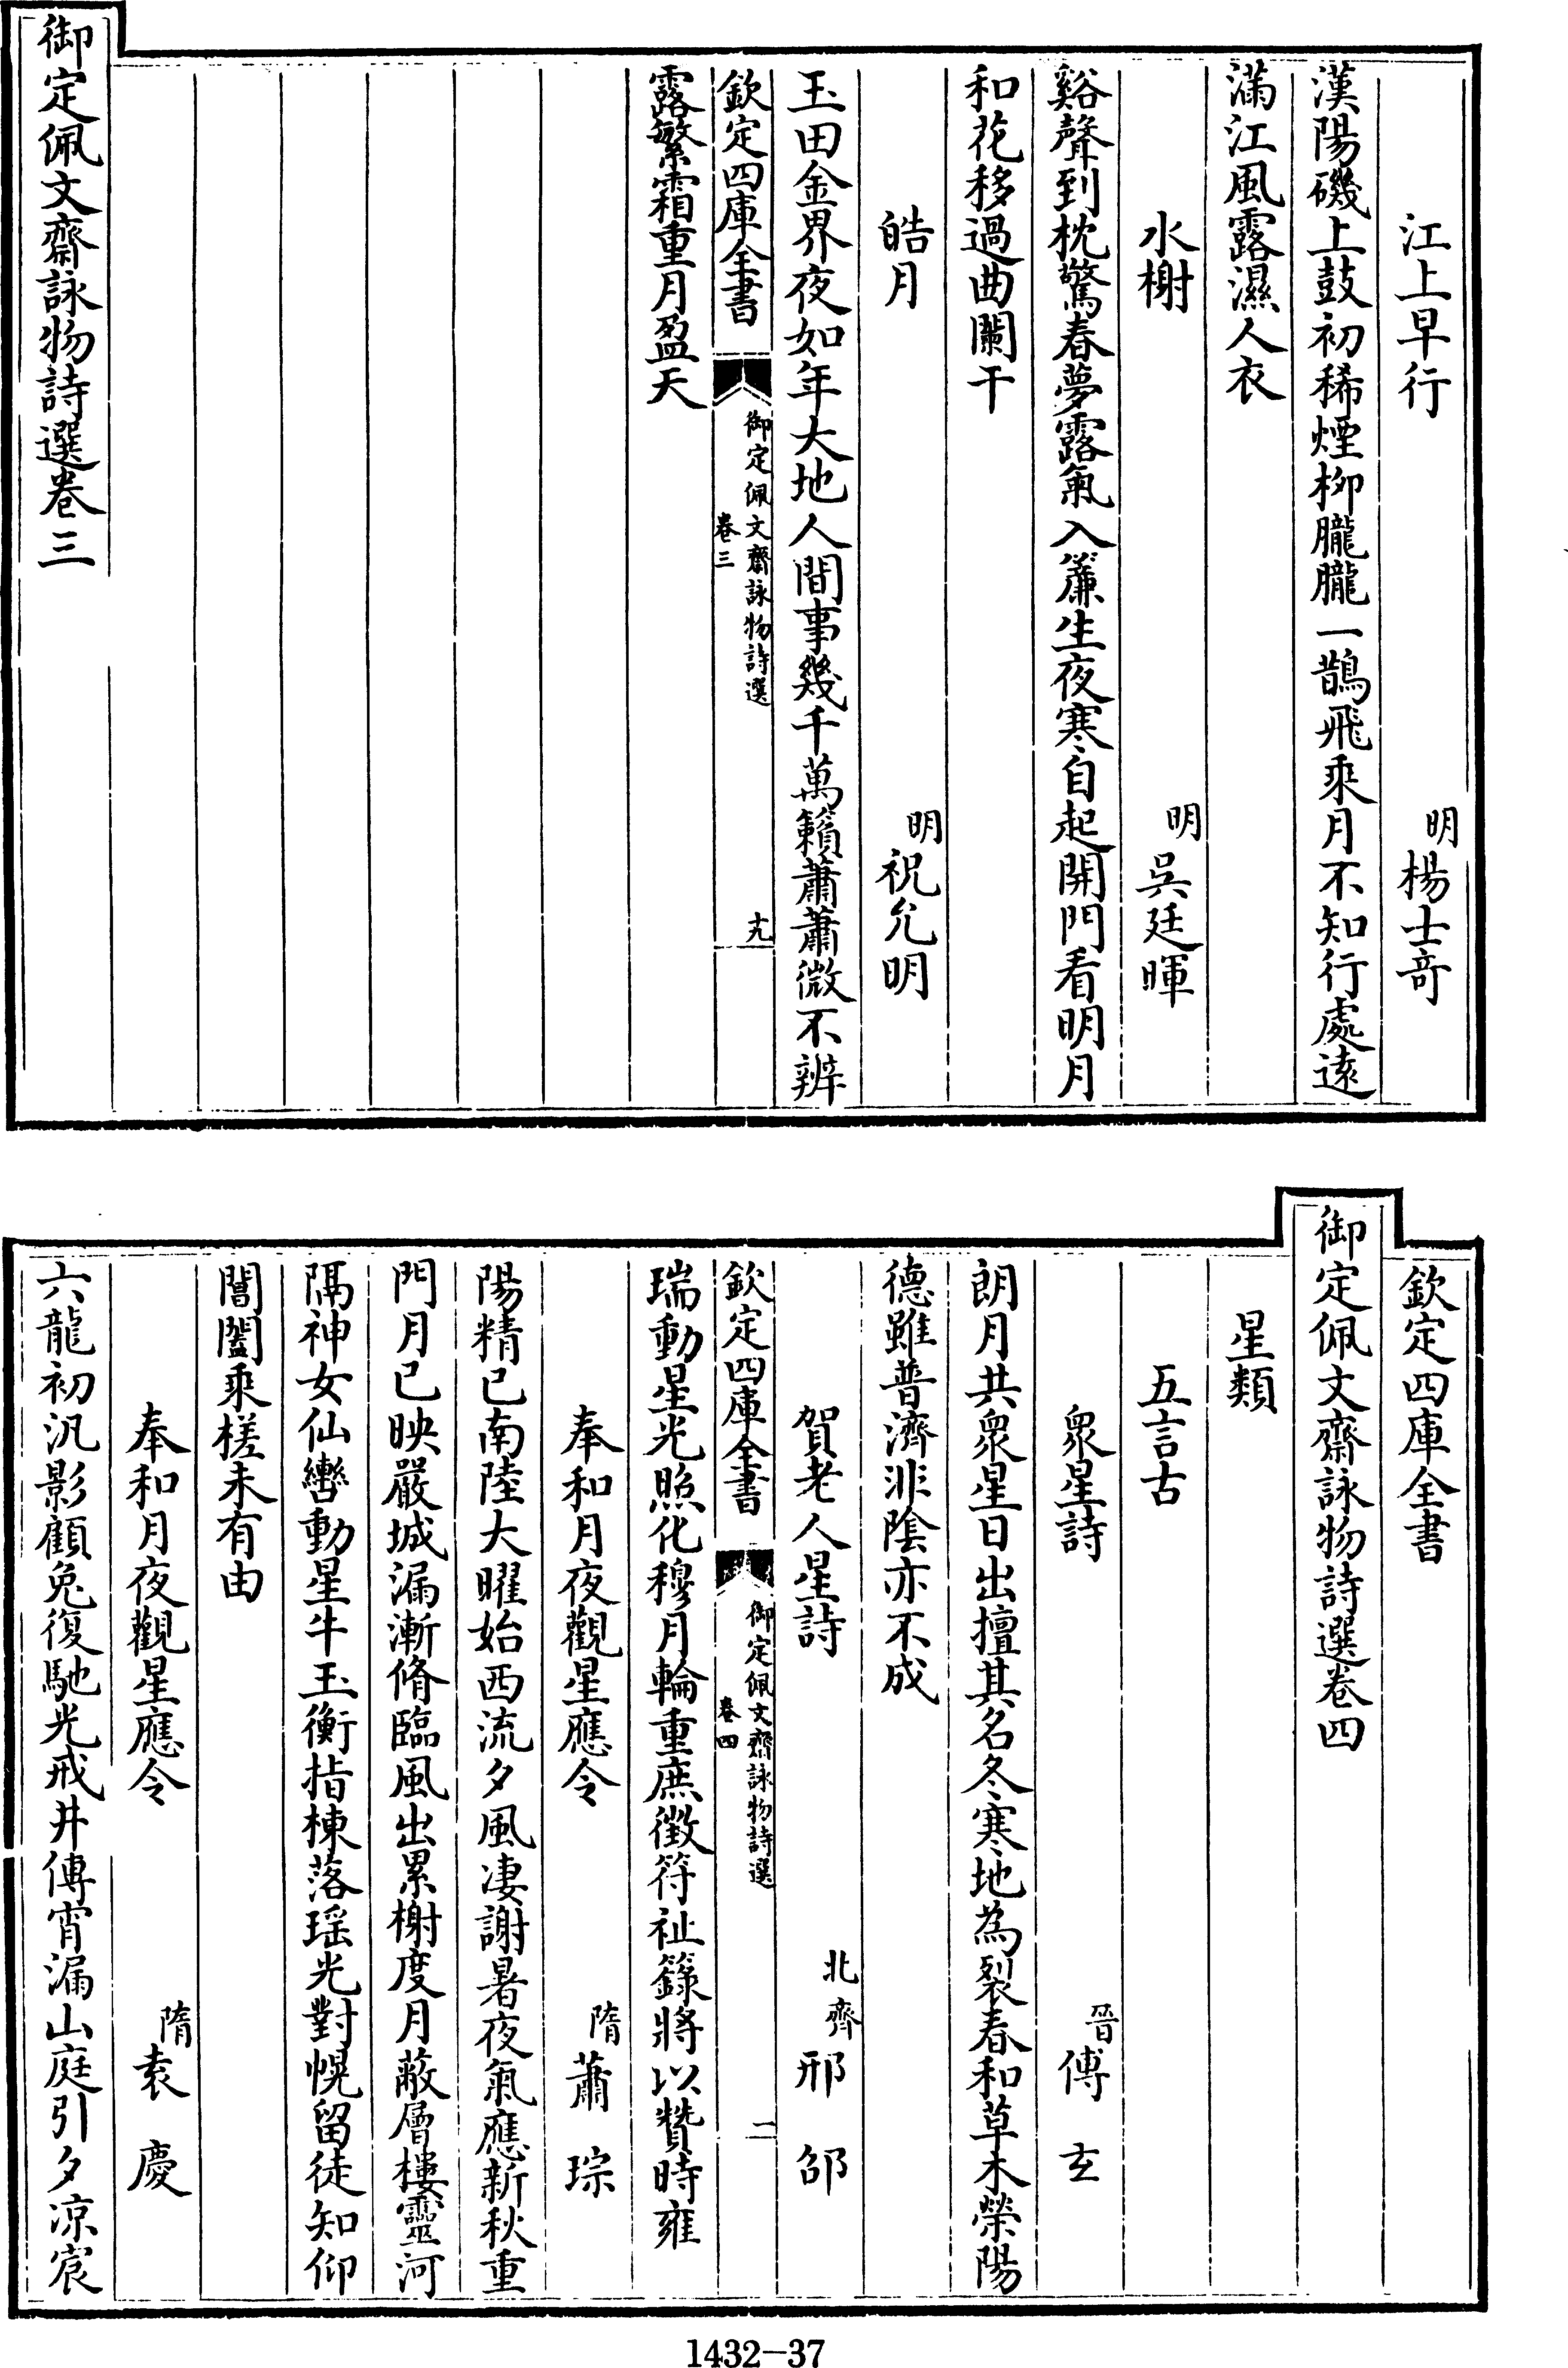 江上早行　明楊士竒
漢陽磯上鼓初稀煙柳朧朧一鵲飛乘月不知行處逺
滿江風露濕人衣
水榭　明吳廷暉
谿聲到枕驚春夢露氣入簾生夜寒自起開門看明月
和花移過曲闌干
皓月　明祝允明
玉田金界夜如年大地人間事幾千萬籟蕭蕭微不辨
欽定四庫全書　御定佩文齋詠物詩選　卷三　十九
露繁霜重月盈天
御定佩文齋詠物詩選卷三
欽定四庫全書
御定佩文齋詠物詩選卷四
星類
五言古
衆星詩　晉傅玄
朗月共衆星日出擅其名冬寒地為裂春和草木榮陽
德雖普濟非陰亦不成
賀老人星詩　北齊邢邵
欽定四庫全書　御定佩文齋詠物詩選　卷四　一
瑞動星光照化穆月輪重庶徵符祉籙將以贊時雍
奉和月夜觀星應令　隋蕭琮
陽精已南陸大曜始西流夕風凄謝暑夜氣應新秋重
門月已映嚴城漏漸脩臨風出累榭度月蔽層樓靈河
隔神女仙轡動星牛玉衡指棟落瑶光對幌留徒知仰
閶闔乘槎未有由
奉和月夜觀星應令　隋袁慶
六龍初汎影顧兔復馳光戒井傳宵漏山庭引夕凉宸
1432-37